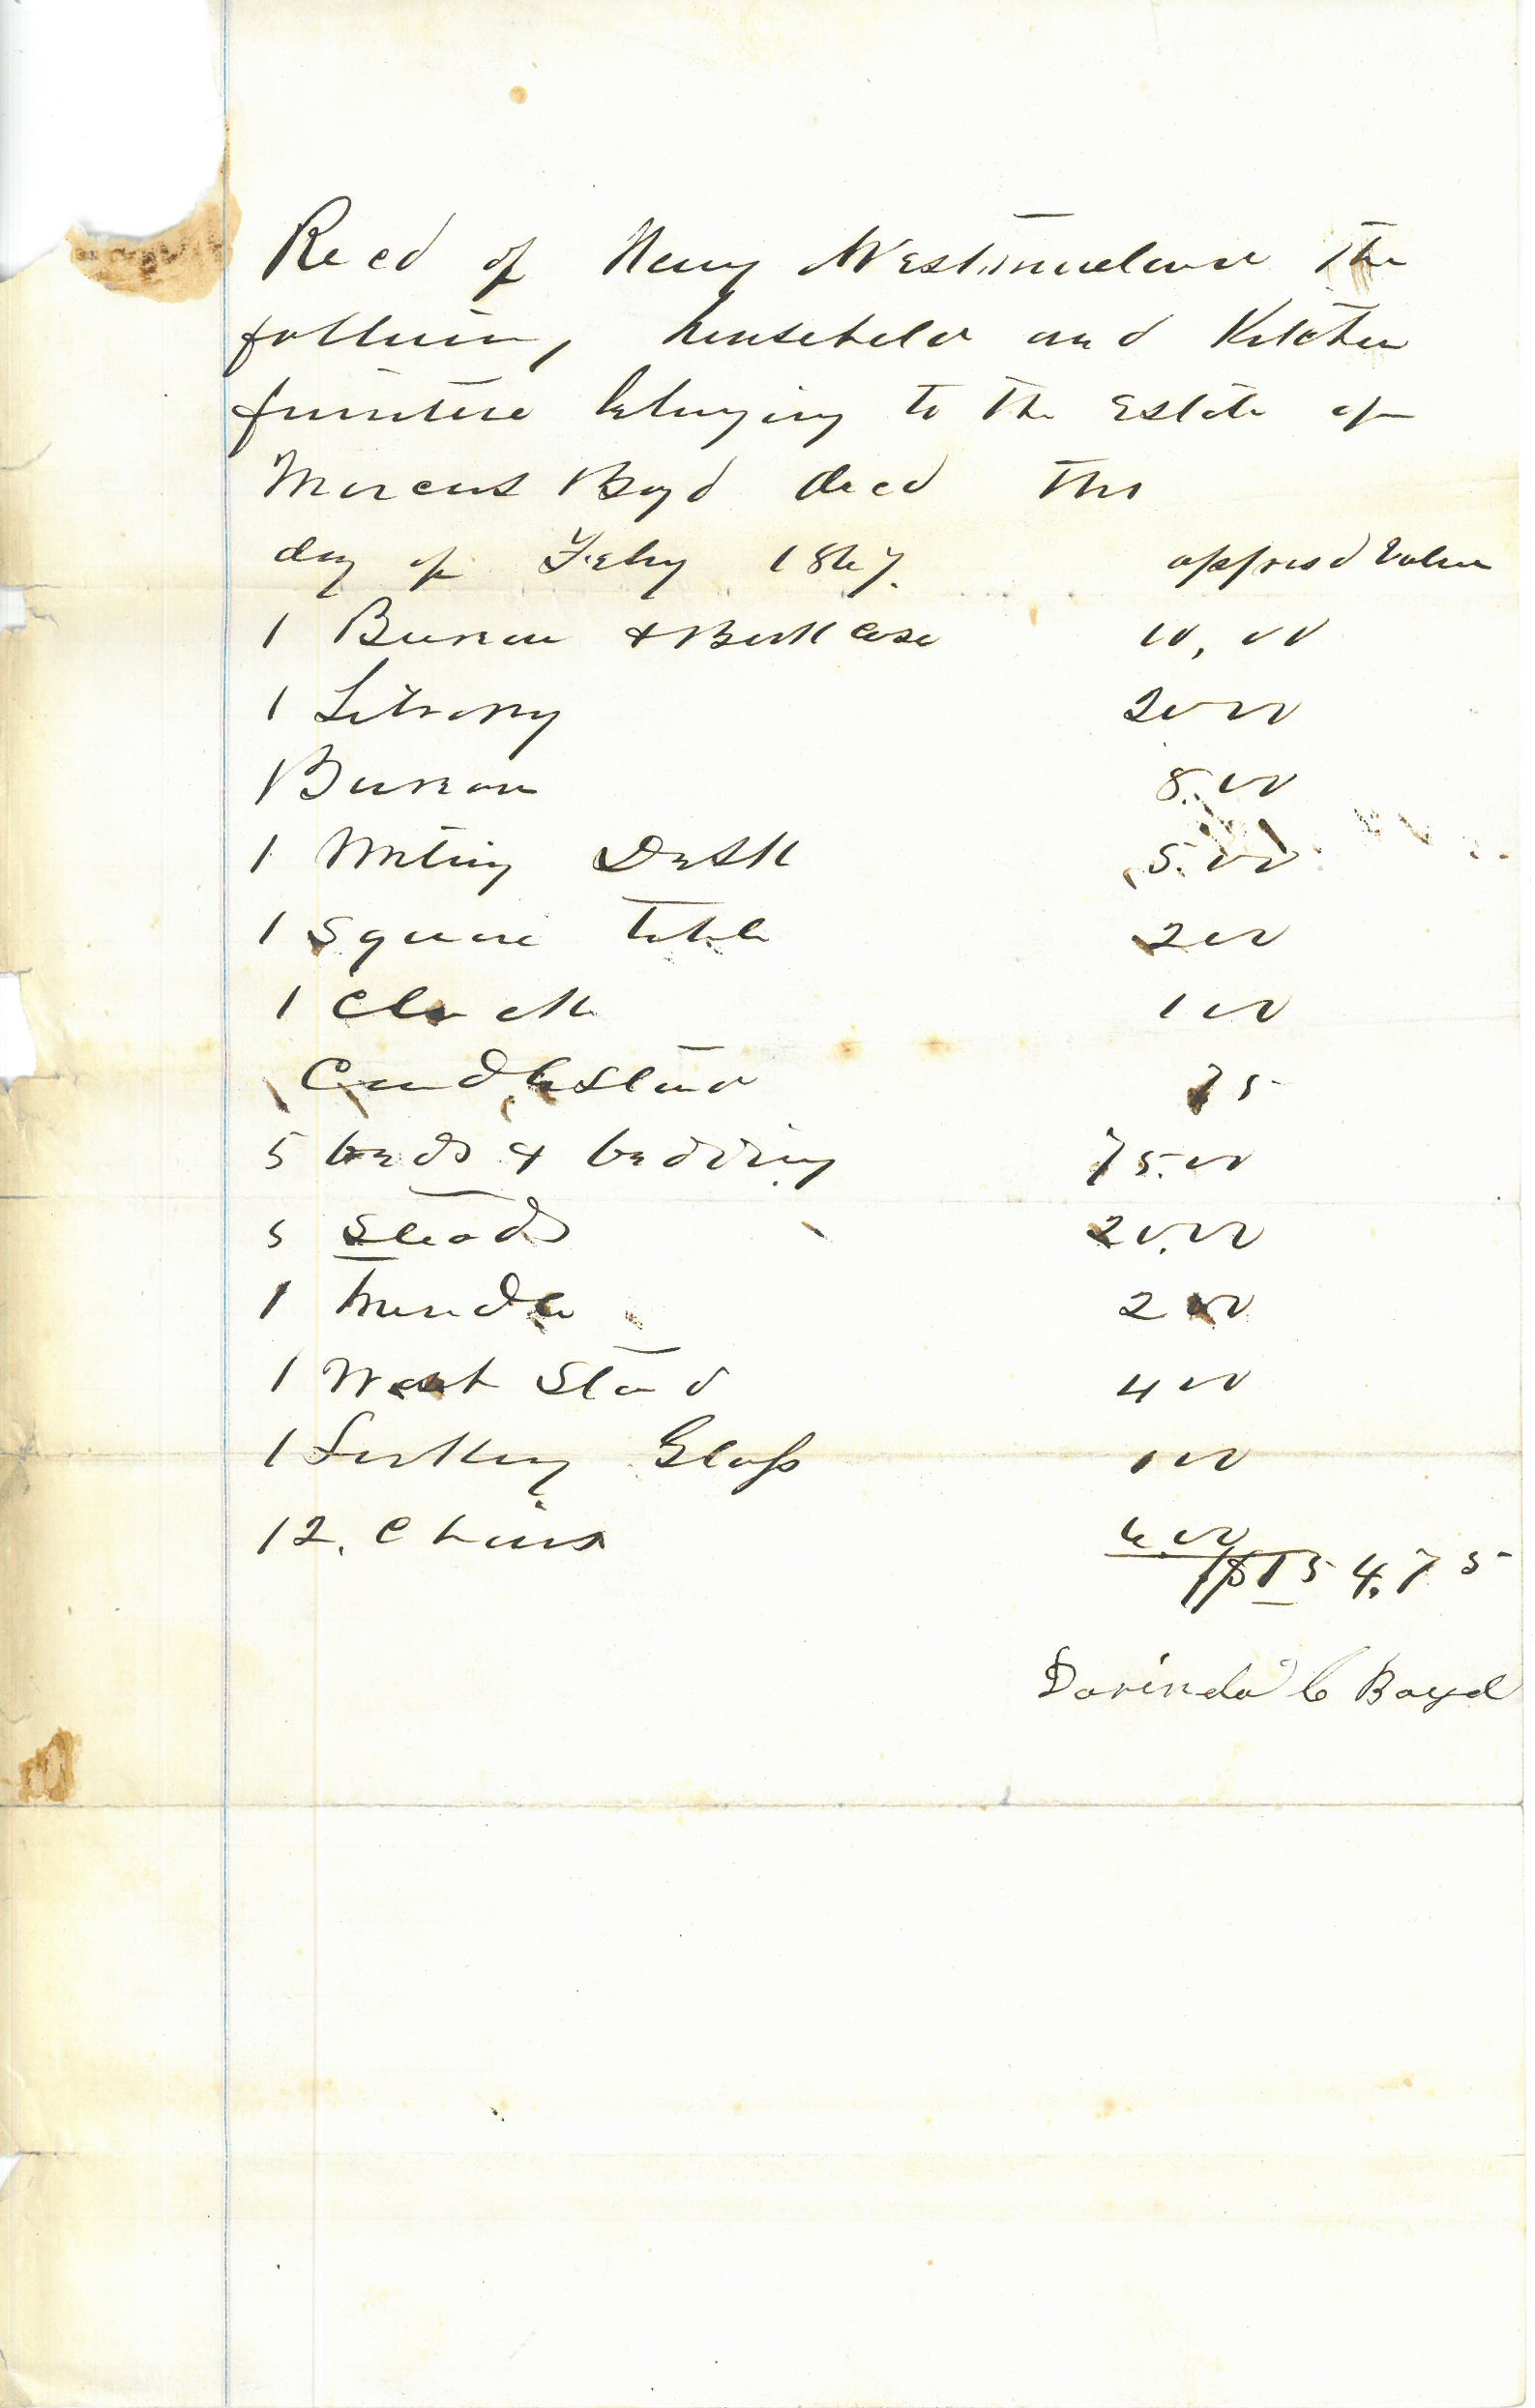 Recd of Henry Westmoreland the
following household and Kitchen
furniture belonging to the Estate of
Marcus Boyd decd this
day of Feby 1867. apprasd Value
1 Bureau & Book case 10,00
1 Library 20 00
1 Bureau 8.00
1 Writing Desk 5.00
1 Square table 2 00
1 Clock 1 00
1 Candlestand 75
5 beds & bedding 75.00
5 Steads 20.00
1 trundle 2 00
1 Wash Stand 4 00
1 Looking Glass 1 00
12. Chairs 6 00
$154.75
Dorinda C Boyd